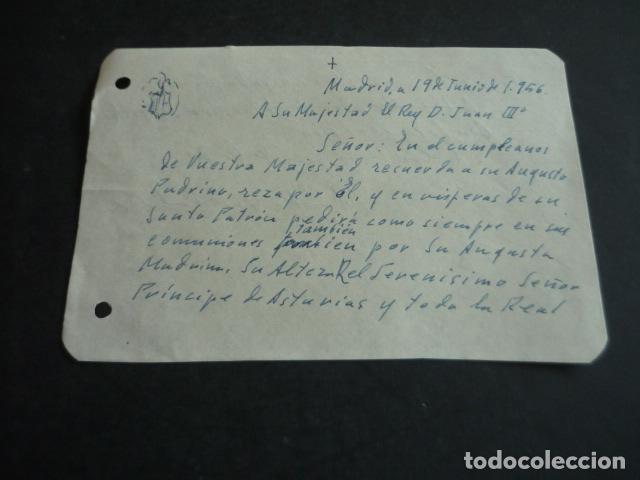 +
Madrid, a 19 de Junio de 1.956.
A Su Majestad El Rey D. Juan IIIº
Señor: En el cumpleaños
de Vuestra Majestad recuerda a su Augusto
Padrino, reza por Él, y en vísperas de su
Santo Patrón pedirá como siempre en sus
también
comuniones también por Su Augusta
Madrina, Su Alteza Rel Serenisimo Señor
Príncipe de Asturias y toda la Real
todocoleccion